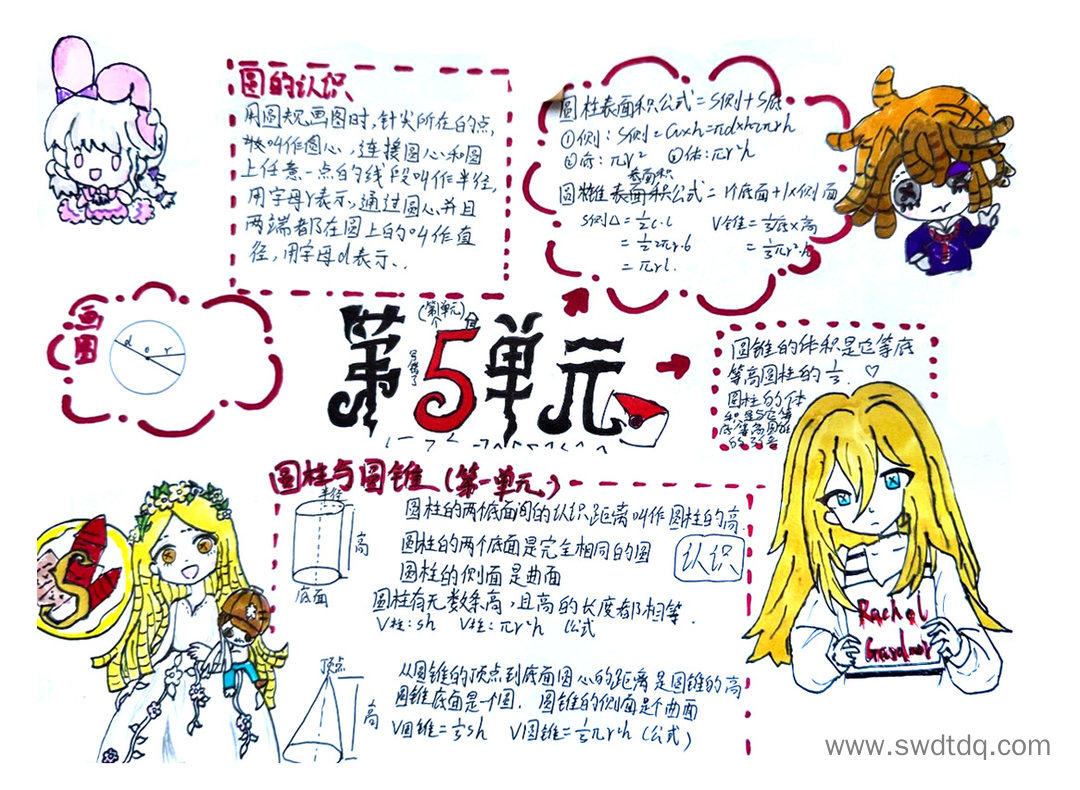 圆的认识
用圆规画图时,针尖所在的点,
叫作圆心,连接圆心和圆
上任意一点的线段叫作半径,
用字母r表示,通过圆心并且
两端都在圆上的叫作直
径,用字母d表示.
圆柱表面积公式=S侧+S底
①侧:S侧=
②底:πr² ③体:πr²h
表面积
圆锥表面积公式=1个底面+1×侧面
S侧△=½c·l V锥=⅓底×高
=½2πr·6 =⅓πr²·h
=πrl.
画图
d o r
(第1单元)
第5单元
写错了
圆锥的体积是它等底
等高圆柱的⅓.♡
圆柱的体
积是与它等
底等高圆锥
的3倍
圆柱与圆锥(第一单元)
半径
高
底面
圆柱的两个底面间的认识距离叫作圆柱的高.
圆柱的两个底面是完全相同的圆
圆柱的侧面是曲面
认识
圆柱有无数条高,且高的长度都相等.
V柱:sh V柱:πr²h 公式
顶点
高
从圆锥的顶点到底面圆心的距离是圆锥的高
圆锥底面是一个圆. 圆锥的侧面是个曲面
V圆锥=⅓sh V圆锥=⅓πr²h (公式)
Rachel
Gardner
www.swdtdq.com